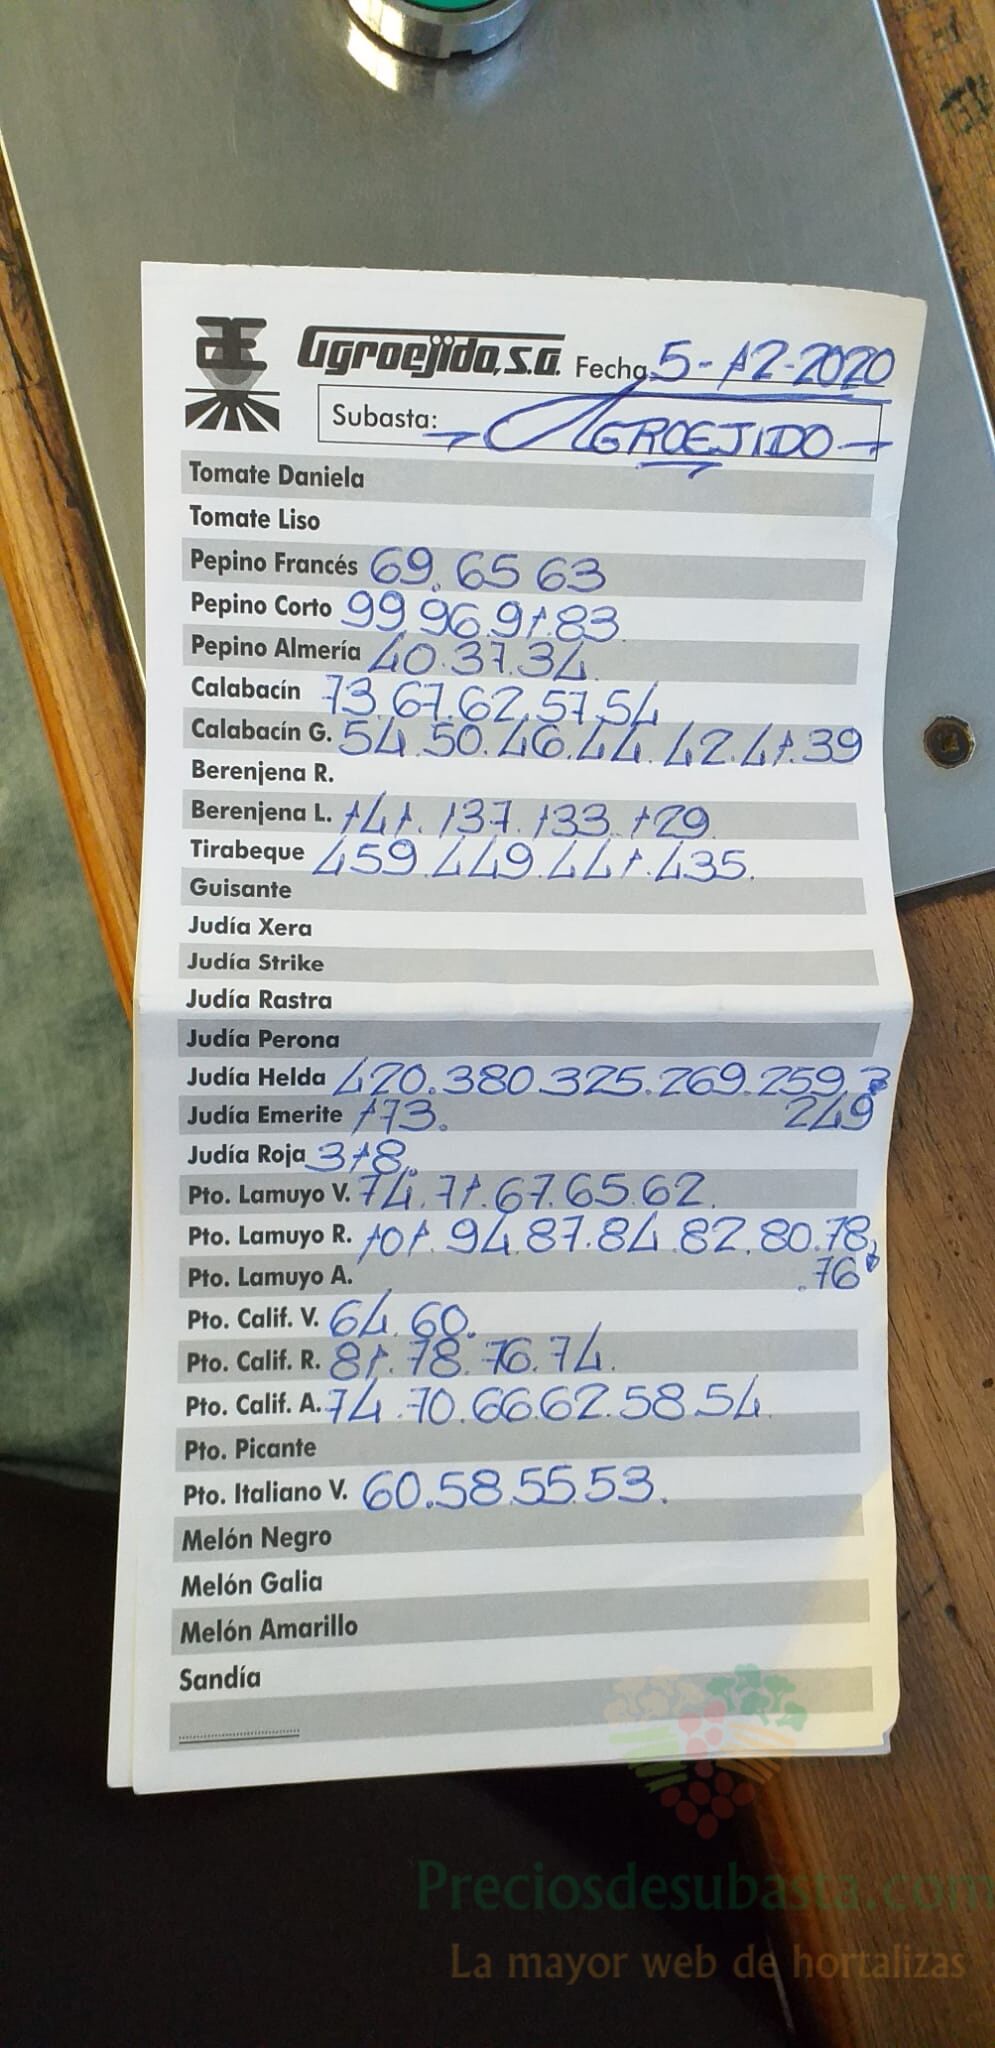 Agroejido, s.a. Fecha 5-12-2020
Subasta: AGROEJIDO
Tomate Daniela
Tomate Liso
Pepino Francés 69. 65 63
Pepino Corto 99 96.91.83.
Pepino Almería 40.37.34.
Calabacín 73.67.62.57.54
Calabacín G. 54.50.46.44.42.41.39
Berenjena R.
Berenjena L. 141. 137. 133. 129.
Tirabeque 459.449.441.435.
Guisante
Judía Xera
Judía Strike
Judía Rastra
Judía Perona
Judía Helda 420.380.325.269.259.
249
Judía Emerite 173.
Judía Roja 318.
Pto. Lamuyo V. 74.71.67.65.62.
Pto. Lamuyo R. 101.94.87.84.82.80.78,
.76
Pto. Lamuyo A.
Pto. Calif. V. 64.60.
Pto. Calif. R. 81.78.76.74.
Pto. Calif. A. 74.70.66.62.58.54.
Pto. Picante
Pto. Italiano V. 60.58.55.53.
Melón Negro
Melón Galia
Melón Amarillo
Sandía
Preciosdesubasta.com
La mayor web de hortalizas